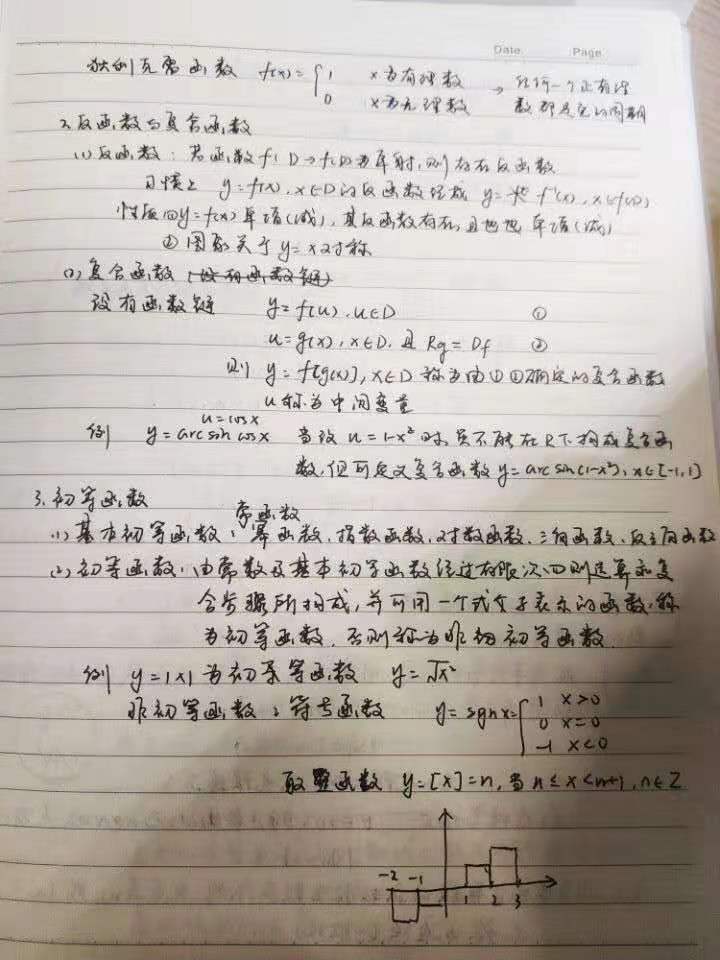 Date Page
狄利克雷函数 f(x)={1 x为有理数 → 任何一个正有理
0 x为无理数 数都是它的周期
2.反函数与复合函数
(1)反函数：若函数f:D→f(D)为单射,则存在反函数
习惯上 y=f(x), x∈D的反函数记成 y=f⁻¹(x), x∈f(D)
性质①y=f(x)单调(减), 其反函数存在,且也也单调(减)
②图象关于y=x对称
(2)复合函数(设有函数链)
设有函数链 y=f(u), u∈D ①
u=g(x), x∈D, 且 Rg=Df ②
则 y=f[g(x)], x∈D 称为由①②确定的复合函数
u称为中间变量
u=cosx
例 y=arcsin cosx 当改 u=1-x² 时, 虽不能在R下构成复合函
数, 但可定义复合函数y=arcsin(1-x²), x∈[-1,1]
3.初等函数
常函数
(1)基本初等函数：幂函数、指数函数、对数函数、三角函数、反三角函数
(2)初等函数：由常数及基本初等函数经过有限次四则运算和复
合步骤所构成, 并可用一个式子表示的函数,称
为初等函数, 否则称为非初初等函数.
例 y=|x|为初等函数 y=√x²
非初等函数：符号函数 y=sgnx={1 x>0
0 x=0
-1 x<0
取整函数 y=[x]=n, 当n≤x<n+1, n∈Z
-2 -1 1 2 3